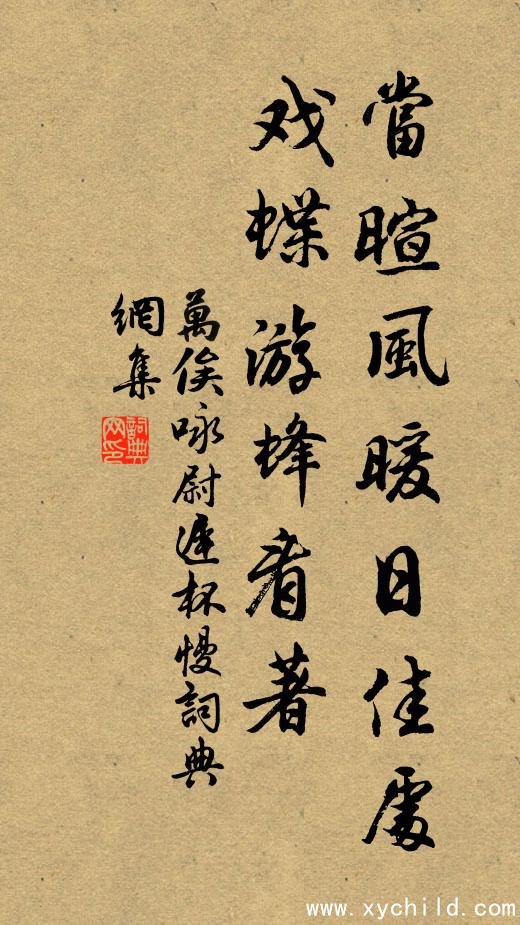 當暄風暖日佳處
戏蝶游蜂看著
萬俟咏尉遲杯慢詞典
網集
詞典
网印
www.xychild.com